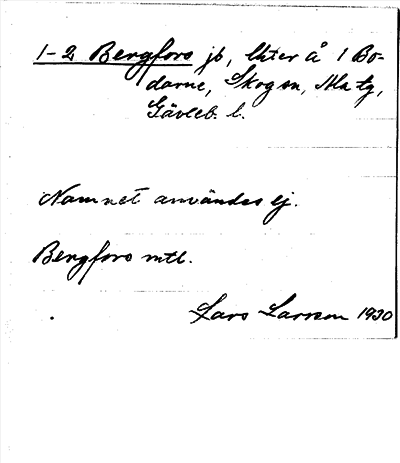 1-2 Bergfors jb, litter å 1 Bo-
darne, Skogsn, Ala tg,
Gävleb. l.
Namnet användes ej.
Bergfors mtl.
Lars Larsson 1930